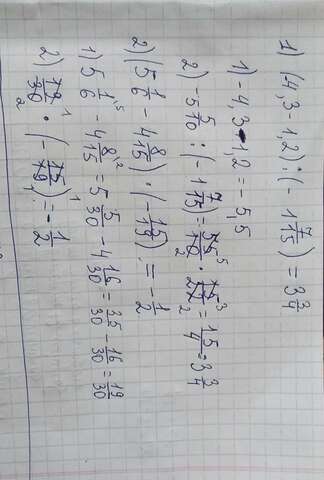 1) (-4,3-1,2):(-1 7/15)=3 3/4
1) -4,3-1,2=-5,5
2) -5 5/10:(-1 7/15)=55/10·15/22=15/4=3 3/4
2) (5 1/6-4 8/15):(-15/19)=-1/2
1) 5 1/6-4 8/15=5 5/30-4 16/30=35/30-16/30=19/30
2) 19/30·(-15/19)=-1/2